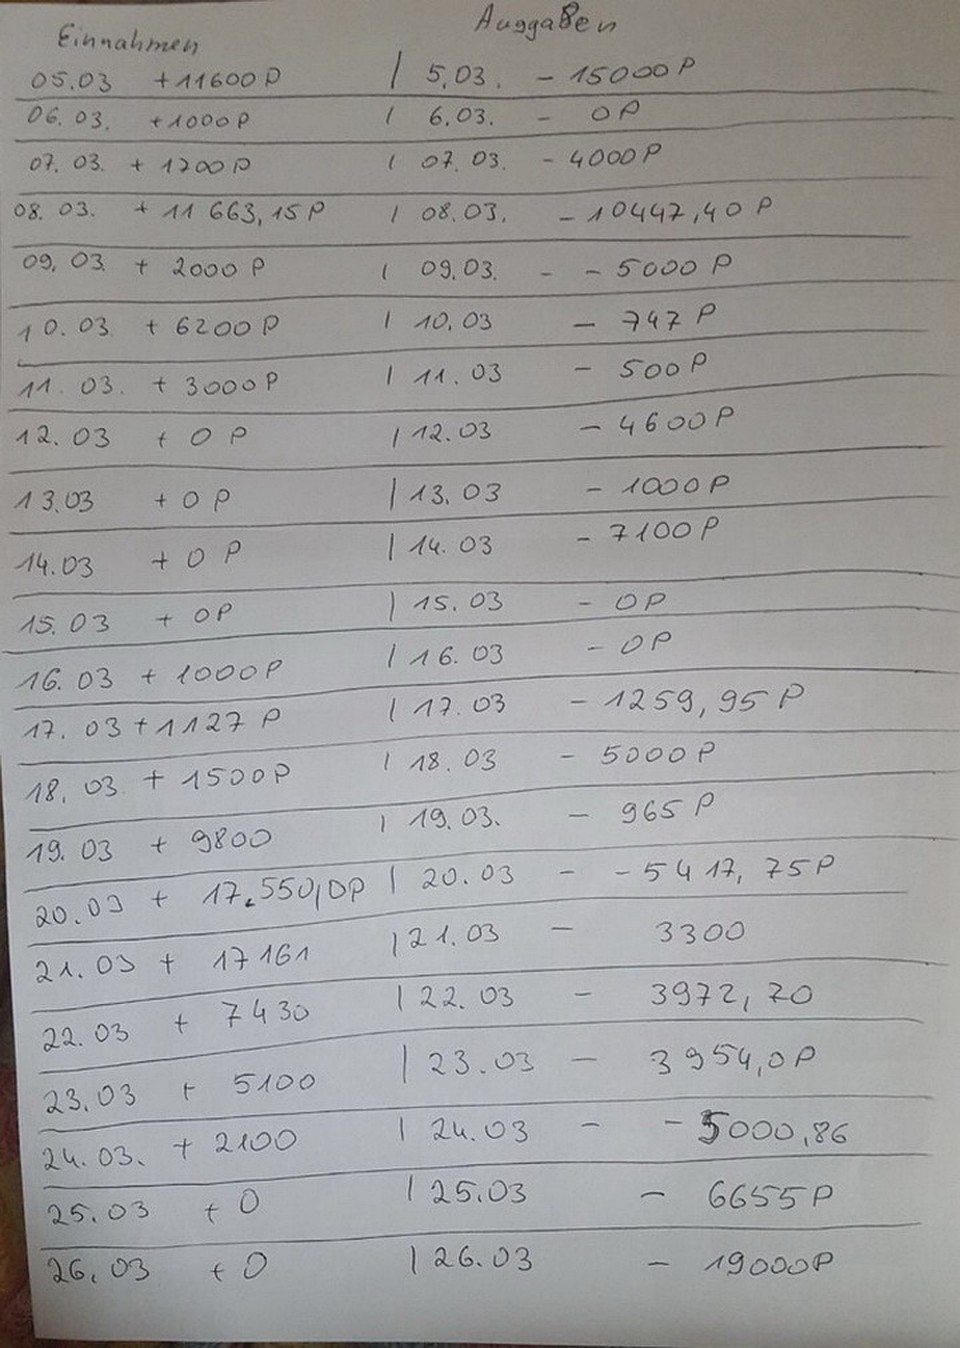 Einnahmen Ausgaben
05.03 +11600P | 5,03. - 15000P
06.03. +1000P | 6.03. - 0P
07.03. + 1200P | 07.03. - 4000P
08.03. + 11 663,15P | 08.03. - 10447,40P
09,03. + 2000P | 09.03. - - 5000P
10.03 + 6200P | 10.03 - 747P
11.03. + 3000P | 11.03 - 500P
12.03 + 0P | 12.03 - 4600P
13.03 + 0P | 13.03 - 1000P
14.03 + 0P | 14.03 - 7100P
15.03 + 0P | 15.03 - 0P
16.03 + 1000P | 16.03 - 0P
17.03 + 1127P | 17.03 - 1259,95P
18.03 + 1500P | 18.03 - 5000P
19.03 + 9800 | 19.03. - 965P
20.03 + 17.550,0P | 20.03 - - 5417,75P
21.03 + 17161 | 21.03 - 3300
22.03 + 7430 | 22.03 - 3972,70
23.03 + 5100 | 23.03 - 3954,0P
24.03. + 2100 | 24.03 - - 5000,86
25.03 + 0 | 25.03 - 6655P
26.03 + 0 | 26.03 - 19000P